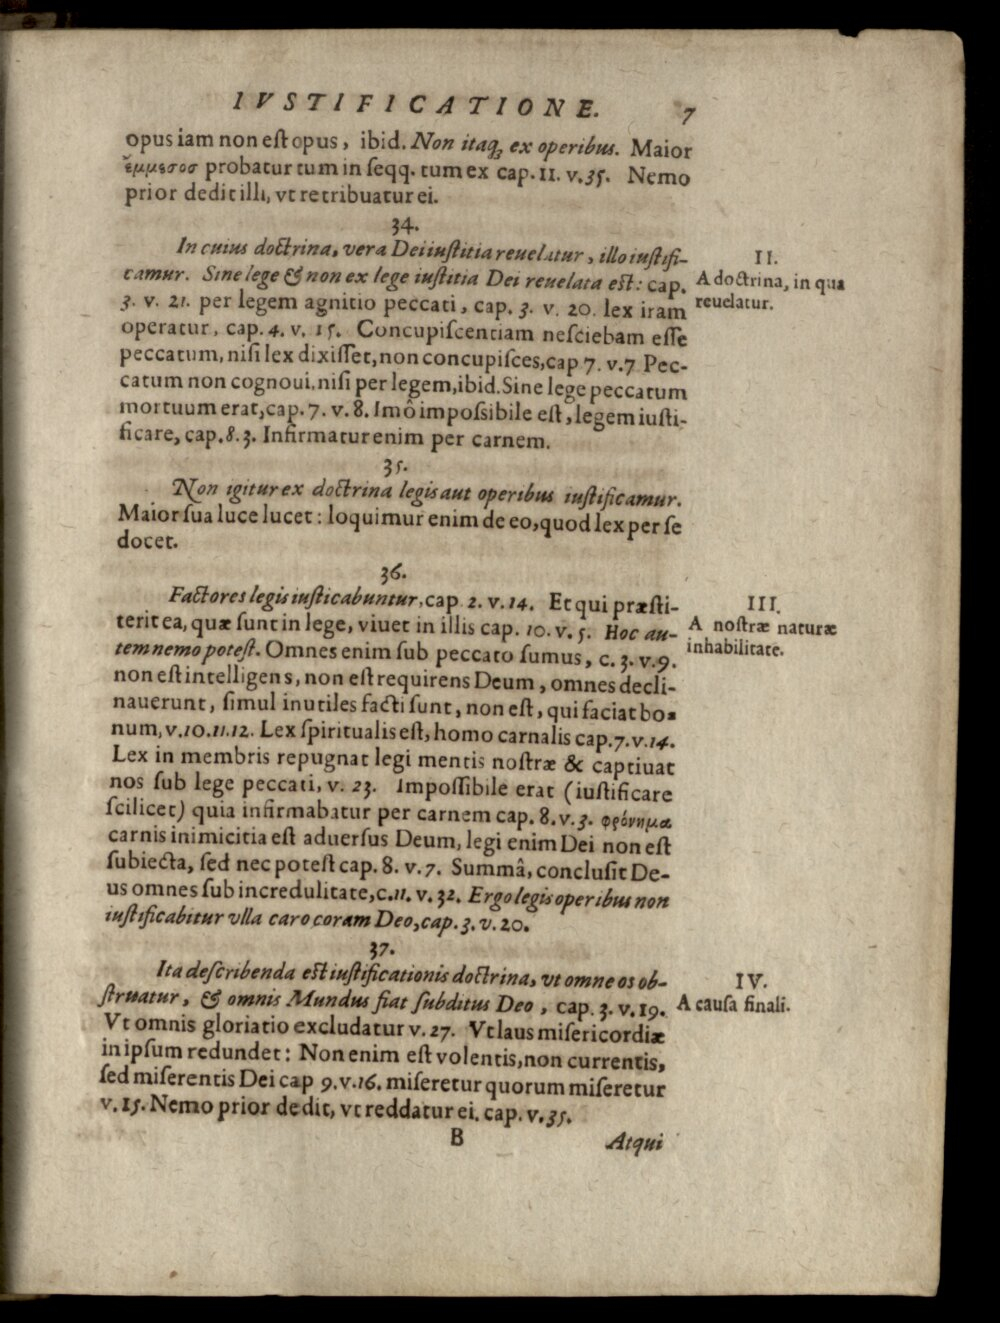 IVSTIFICATIONE. 7
opus iam non est opus, ibid. Non itaq; ex operibus. Maior
ἔμμεσος probatur tum in seqq. tum ex cap. 11. v. 35. Nemo
prior dedit illi, vt retribuatur ei.
34.
In cuius doctrina, vera Dei iustitia reuelatur, illo iustifi-
camur. Sine lege & non ex lege iustitia Dei reuelata est: cap.
3. v. 21. per legem agnitio peccati, cap. 3. v. 20. lex iram
operatur, cap. 4. v. 15. Concupiscentiam nesciebam esse
peccatum, nisi lex dixisset, non concupisces, cap 7. v. 7 Pec-
catum non cognoui, nisi per legem, ibid. Sine lege peccatum
mortuum erat, cap. 7. v. 8. Imô impossibile est, legem iusti-
ficare, cap. 8. 3. Infirmatur enim per carnem.
II.
A doctrina, in qua
reuelatur.
35.
Non igitur ex doctrina legis aut operibus iustificamur.
Maior sua luce lucet: loquimur enim de eo, quod lex per se
docet.
36.
Factores legis iusticabuntur, cap 2. v. 14. Et qui præsti-
terit ea, quæ sunt in lege, viuet in illis cap. 10. v. 5. Hoc au-
tem nemo potest. Omnes enim sub peccato sumus, c. 3. v. 9.
non est intelligens, non est requirens Deum, omnes decli-
nauerunt, simul inutiles facti sunt, non est, qui faciat bo-
num, v. 10. 11. 12. Lex spiritualis est, homo carnalis cap. 7. v. 14.
Lex in membris repugnat legi mentis nostræ & captiuat
nos sub lege peccati, v. 23. Impossibile erat (iustificare
scilicet) quia infirmabatur per carnem cap. 8. v. 3. φρόνημα
carnis inimicitia est aduersus Deum, legi enim Dei non est
subiecta, sed nec potest cap. 8. v. 7. Summâ, conclusit De-
us omnes sub incredulitate, c. 11. v. 32. Ergo legis operibus non
iustificabitur vlla caro coram Deo, cap. 3. v. 20.
III.
A nostræ naturæ
inhabilitate.
37.
Ita describenda est iustificationis doctrina, vt omne os ob-
struatur, & omnis Mundus fiat subditus Deo, cap. 3. v. 19.
Vt omnis gloriatio excludatur v. 27. Vt laus misericordiæ
in ipsum redundet: Non enim est volentis, non currentis,
sed miserentis Dei cap 9. v. 16. miseretur quorum miseretur
v. 15. Nemo prior dedit, vt reddatur ei. cap. v. 35.
IV.
A causa finali.
B Atqui